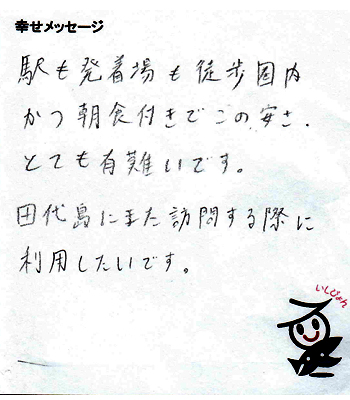 幸せメッセージ
駅も発着場も徒歩圏内
かつ朝食付きでこの安さ、
とても有難いです。
田代島にまた訪問する際に
利用したいです。
いしぴょん